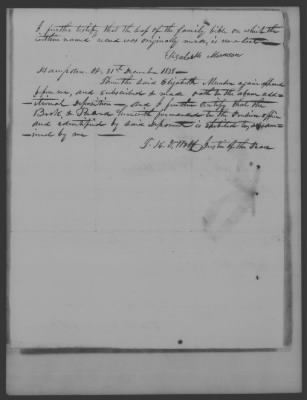 I further testify that the leaf of the family bible on which the
within named record was originally made, is now lost
Elizabeth
Hampshire SS. 31st December 1838
Then the said Elizabeth again appeared
before me, and subscribed & made oath to the above add-
itional deposition — and I further certify that the
Book & Record herewith forwarded to the Pension office
and identified by said deponent is entitled to
by me
Justice of the Peace